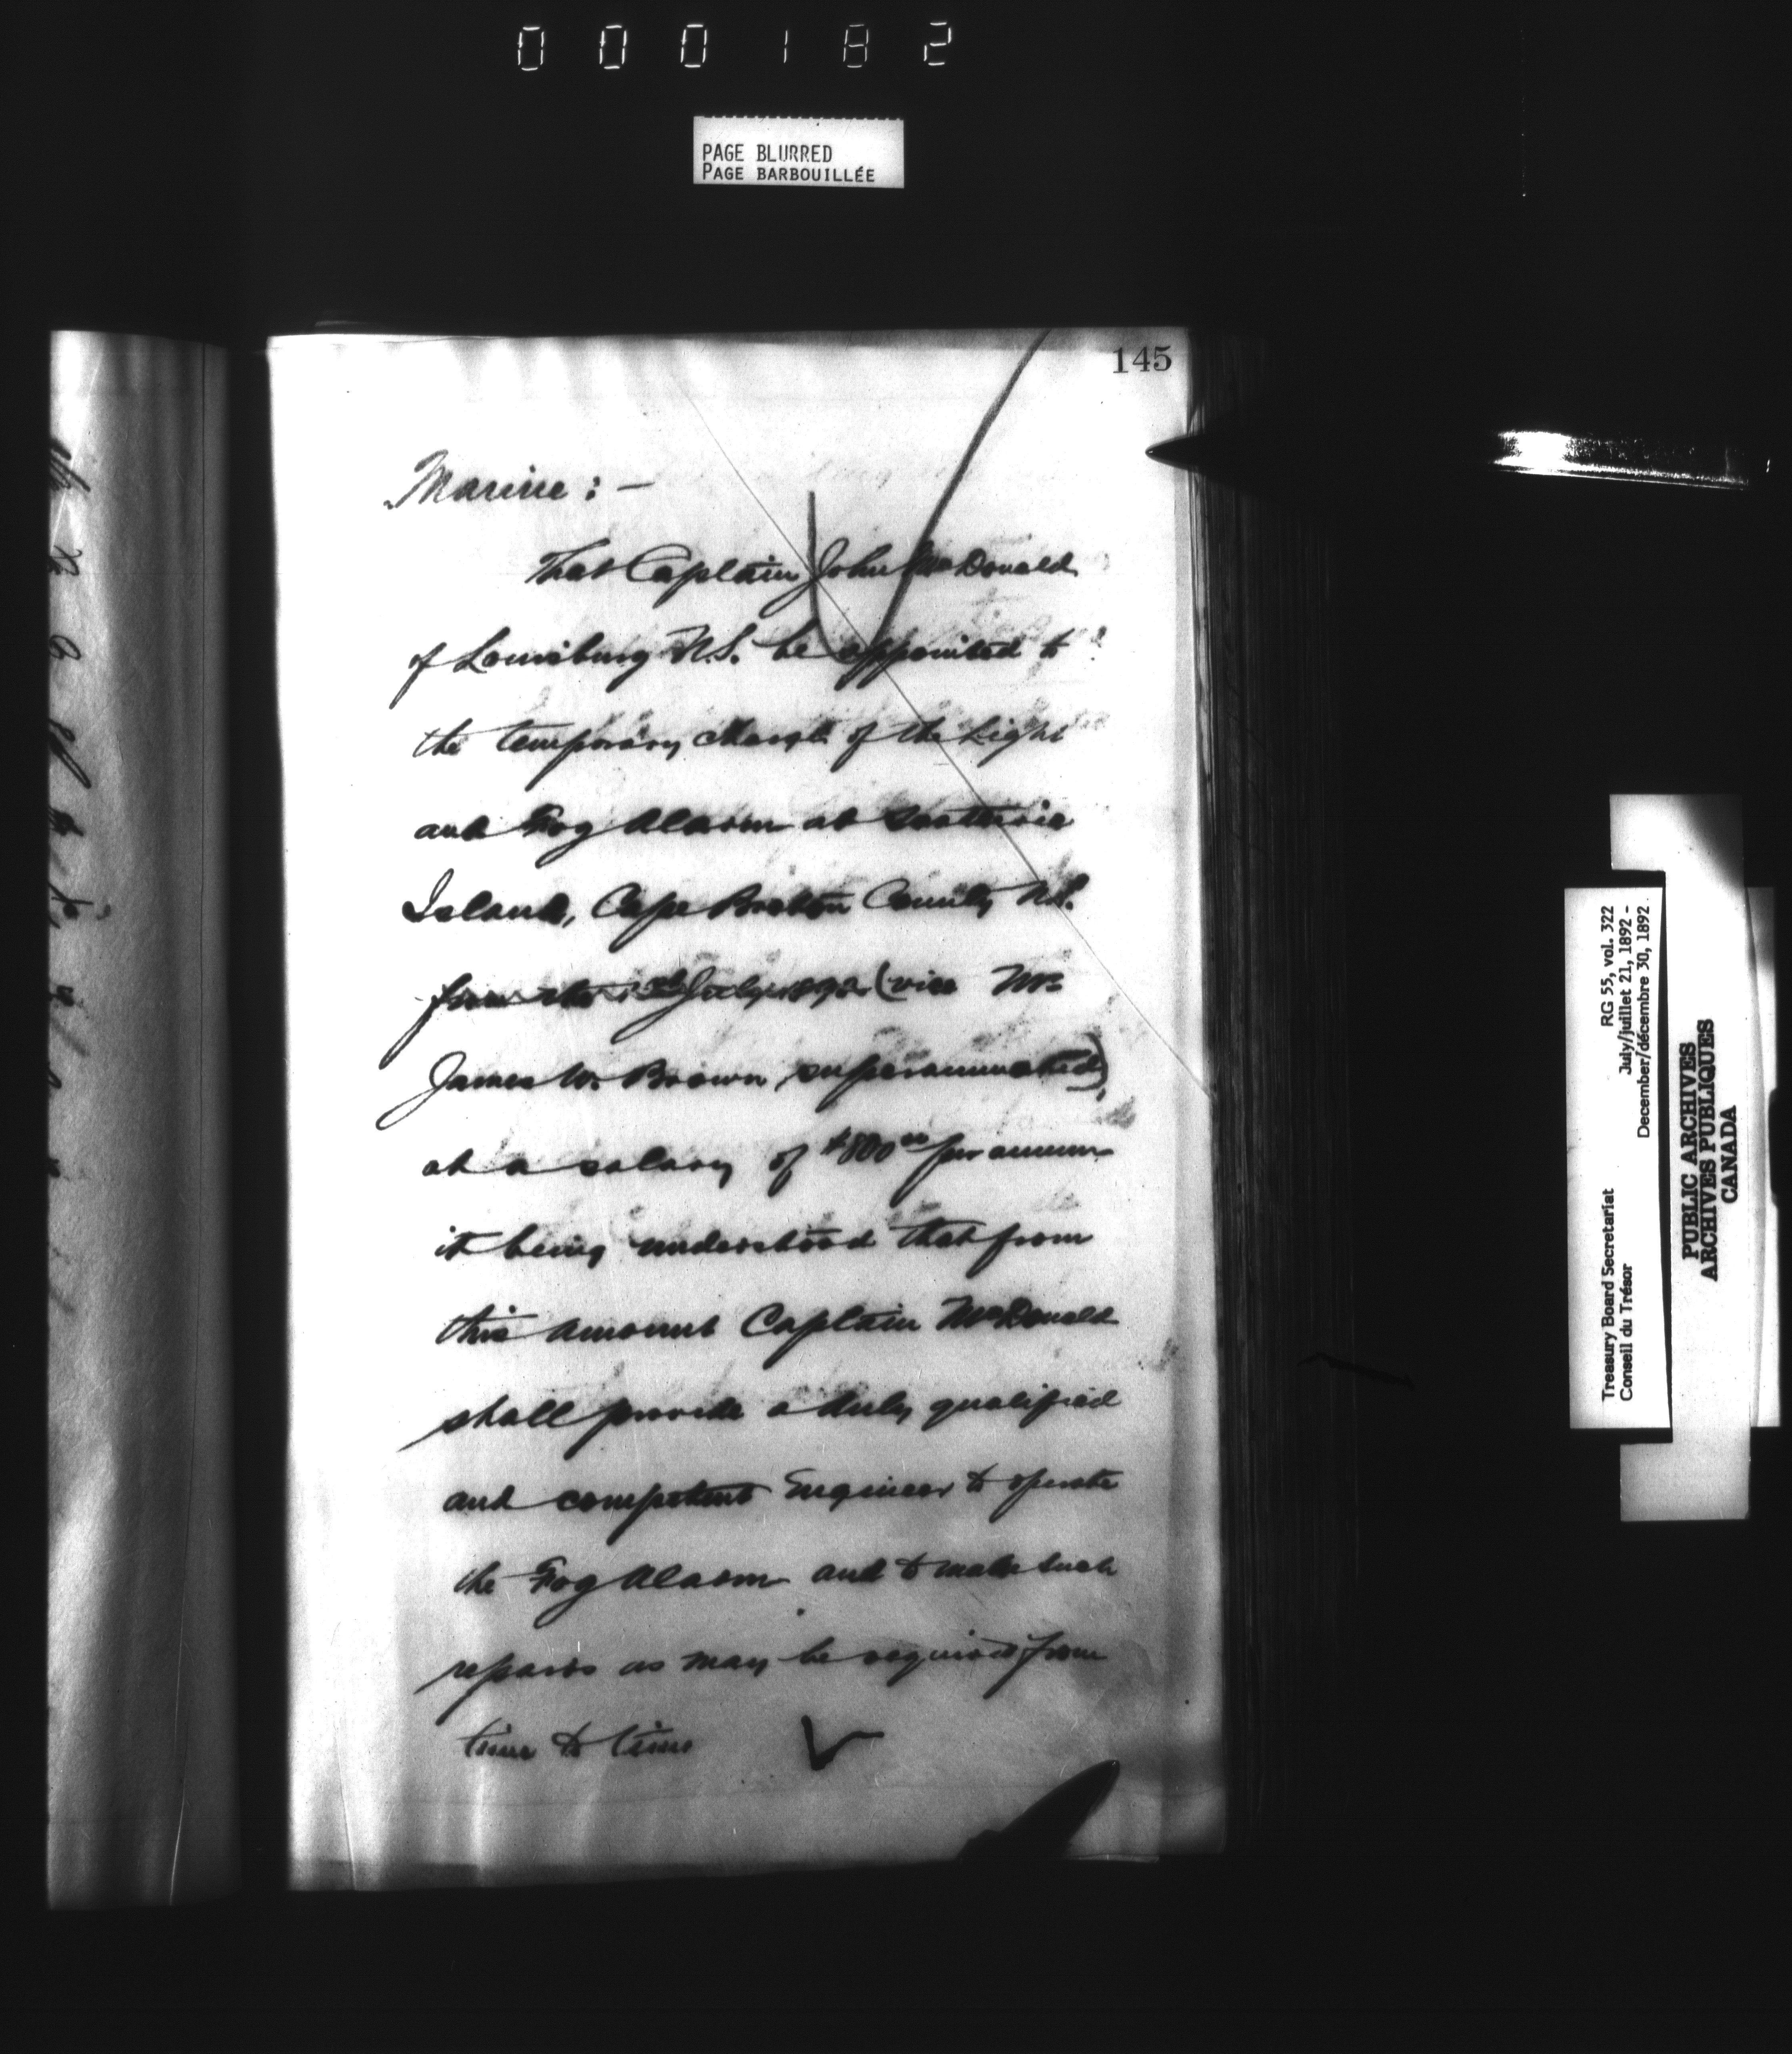 000182
PAGE BLURRED
PAGE BARBOUILLÉE
145
Marine :-
That Captain John McDonald
of Louisburg N.S. be appointed to
the temporary charge of the Light
and Fog Alarm at Scatterie
Island, Cape Breton County N.S.
from the 1st July 1892 (vice Mr
James W. Brown superannuated),
at a salary of $800.00 per annum
it being understood that from
this amount Captain McDonald
shall provide a duly qualified
and competent Engineer to operate
the Fog Alarm and to make such
repairs as may be required from
time to time
Treasury Board Secretariat
Conseil du Trésor
RG 55, vol. 322
July/juillet 21, 1892 -
December/décembre 30, 1892
PUBLIC ARCHIVES
ARCHIVES PUBLIQUES
CANADA